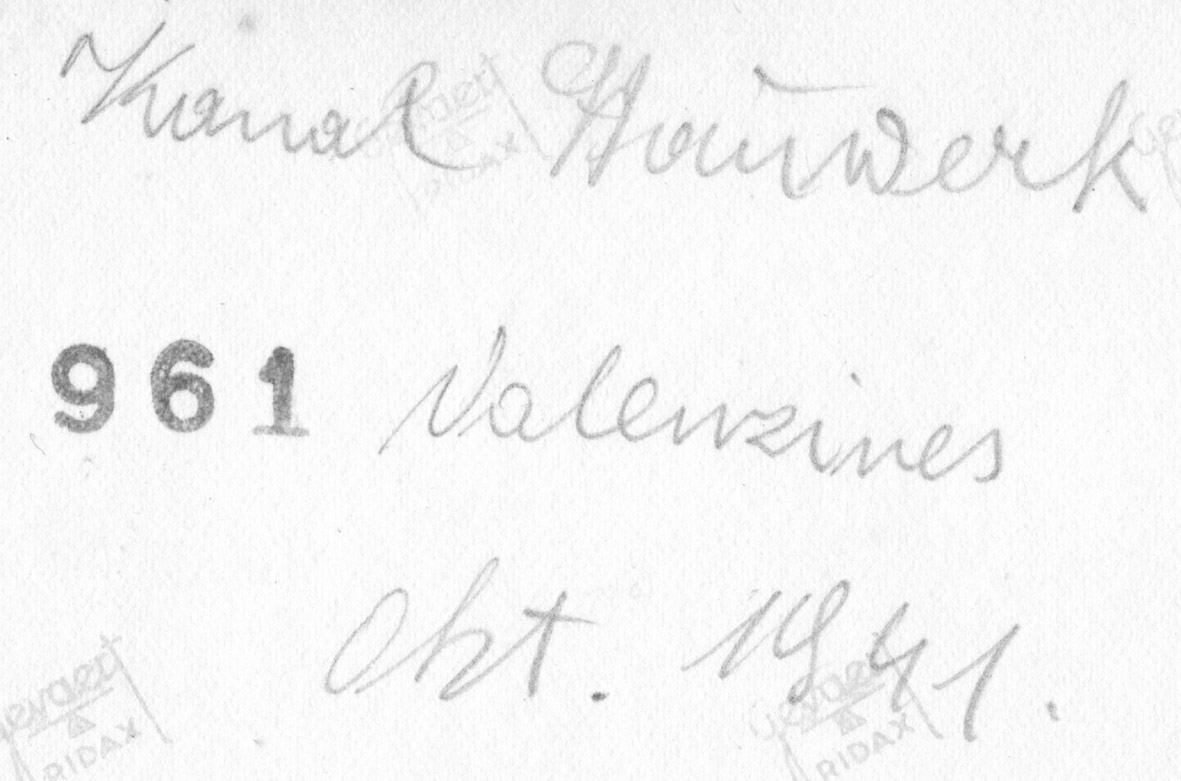 Kanal Stauwerk
961 Valenzines
Okt. 1941.
Gevaert
RIDAX
Gevaert
RIDAX
Gevaert
RIDAX